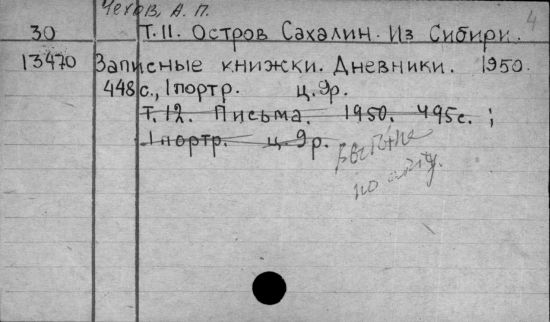 Чехов, А. П. 4
30 Т.11. Остров Сахалин. Из Сибири.
13470 Записные книжки. Дневники. 1950.
448с., 1портр. ц. 9р.
Т. 12. Письма. 1950. 495с. ;
1портр. ц. 9р.
по акту.